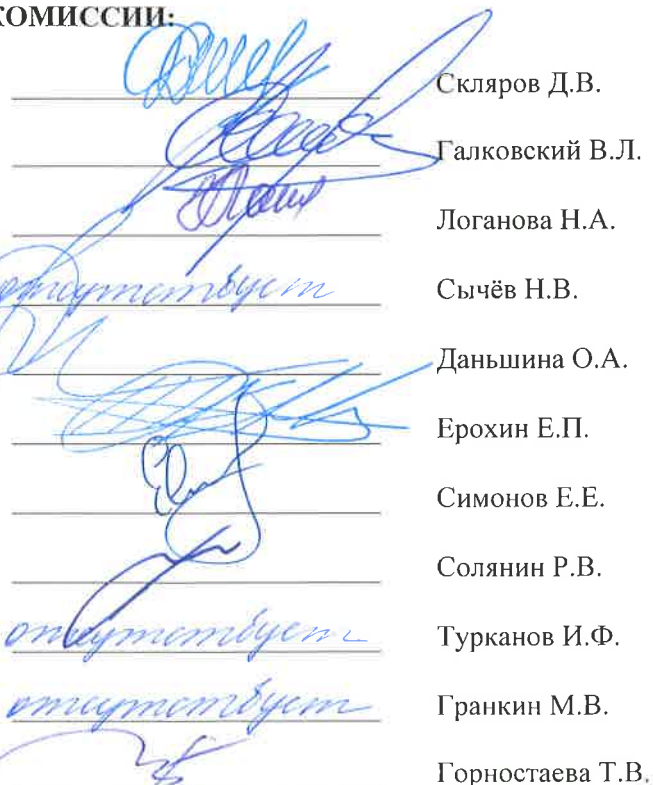 КОМИССИИ:
Скляров Д.В.
Галковский В.Л.
Логанова Н.А.
отсутствует Сычёв Н.В.
Даньшина О.А.
Ерохин Е.П.
Симонов Е.Е.
Солянин Р.В.
отсутствует Турканов И.Ф.
отсутствует Гранкин М.В.
Горностаева Т.В.